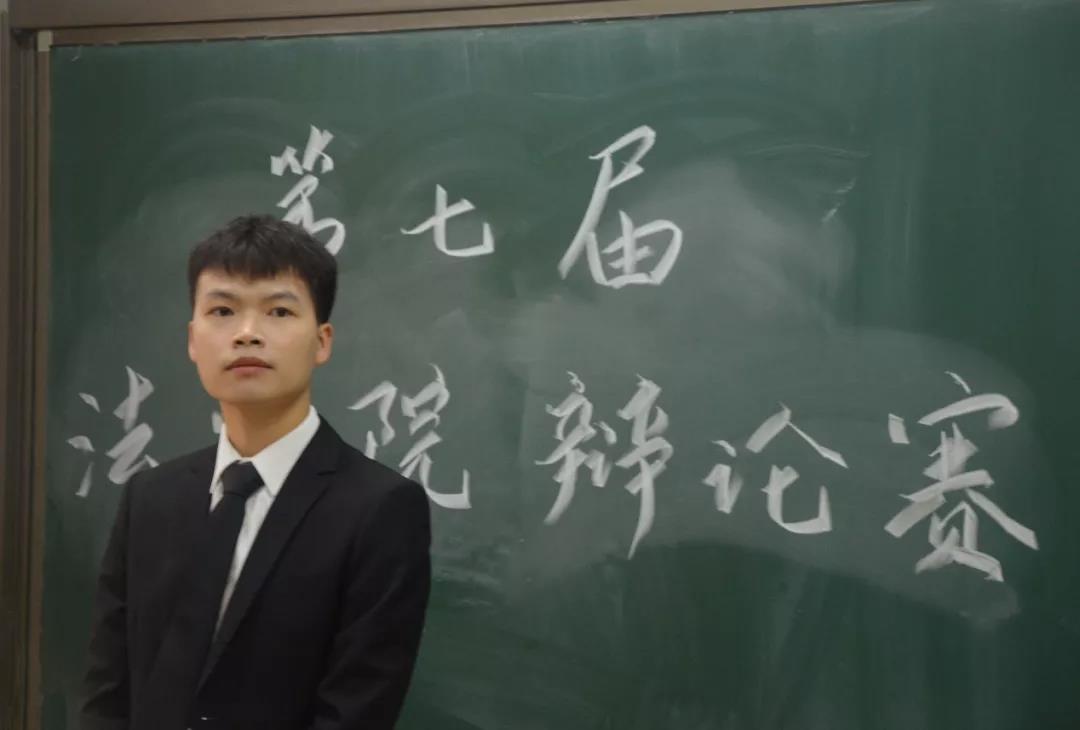 第七届
法 院辩论赛